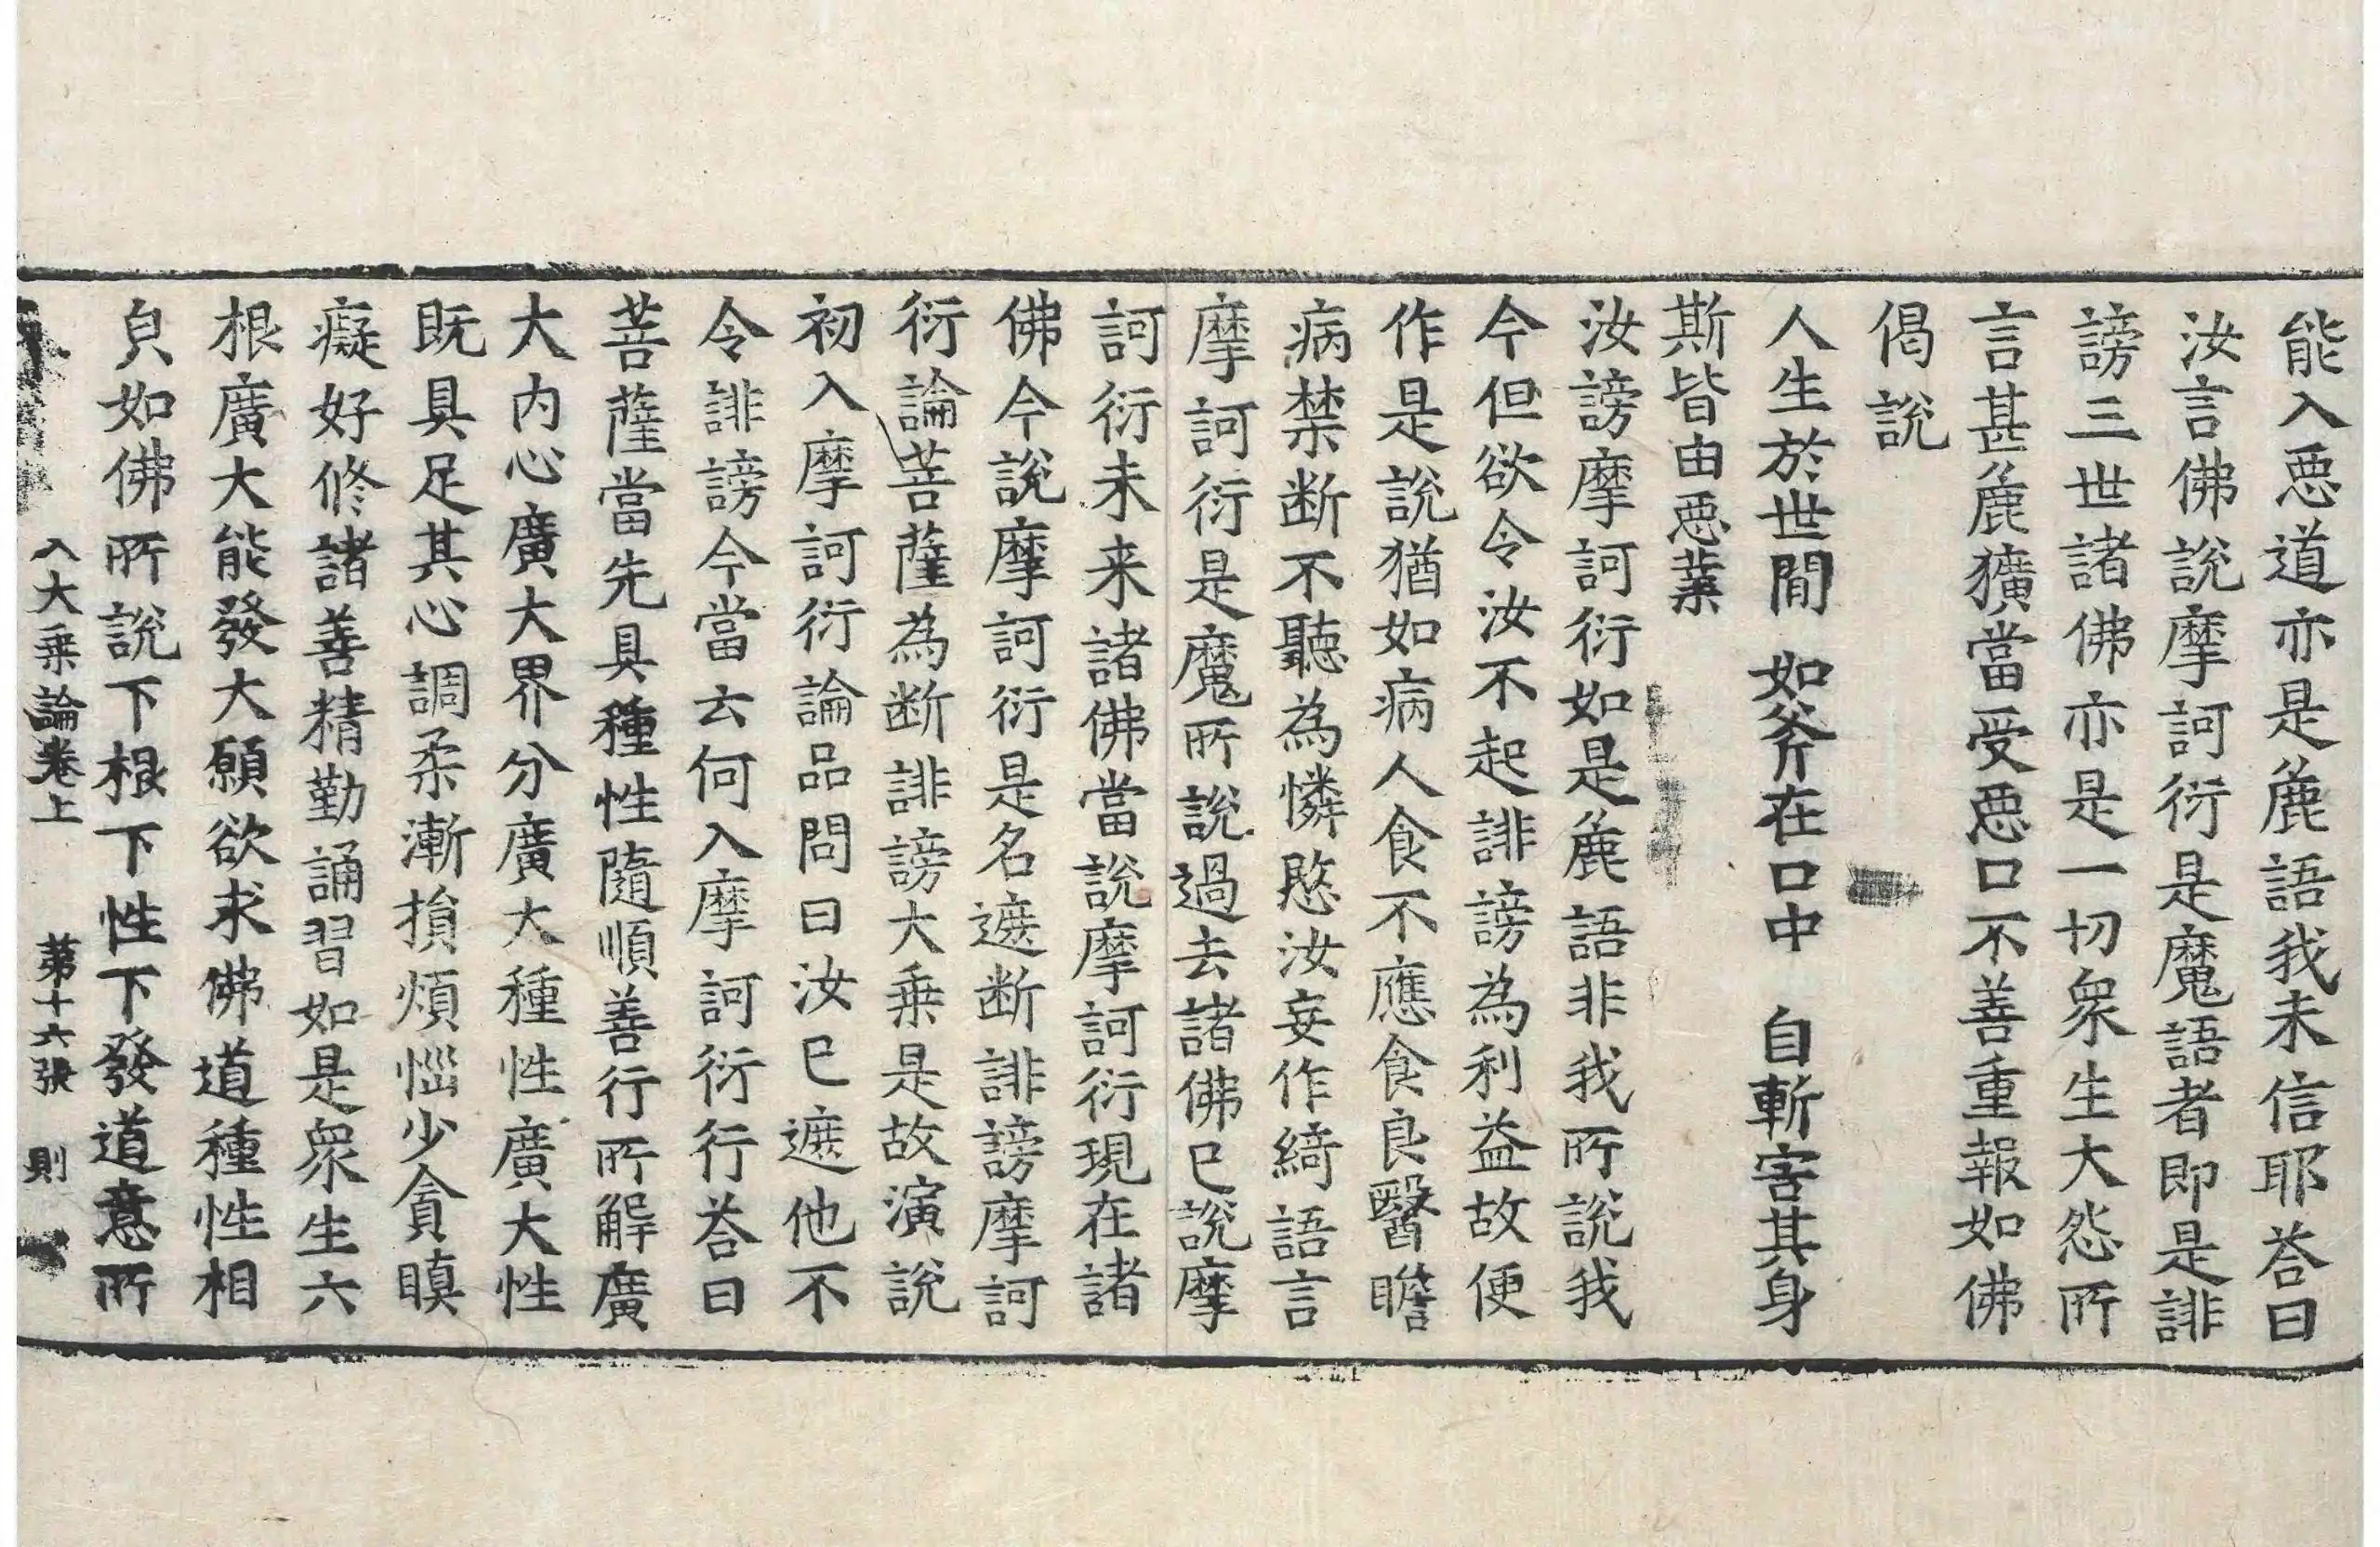 能入惡道亦是麁語我未信耶荅曰
汝言佛說摩訶衍是魔語者即是誹
謗三世諸佛亦是一切衆生大怨所
言甚麁獷當受惡口不善重報如佛
偈說
人生於世間　如斧在口中　自斬害其身
斯皆由惡業
汝謗摩訶衍如是麁語非我所說我
今但欲令汝不起誹謗為利益故便
作是說猶如病人食不應食良醫瞻
病禁断不聽為憐愍汝妄作綺語言
摩訶衍是魔所說過去諸佛已說摩
訶衍未来諸佛當說摩訶衍現在諸
佛今說摩訶衍是名遮断誹謗摩訶
衍論菩薩為断誹謗大乗是故演說
初入摩訶衍論品問曰汝已遮他不
令誹謗今當云何入摩訶衍行荅曰
菩薩當先具種性隨順善行所解廣
大内心廣大界分廣大種性廣大性
既具足其心調柔漸損煩惱少貪瞋
癡好修諸善精勤誦習如是衆生六
根廣大能發大願欲求佛道種性相
皃如佛所說下根下性下發道意所
入大乗論卷上　第十六張　則